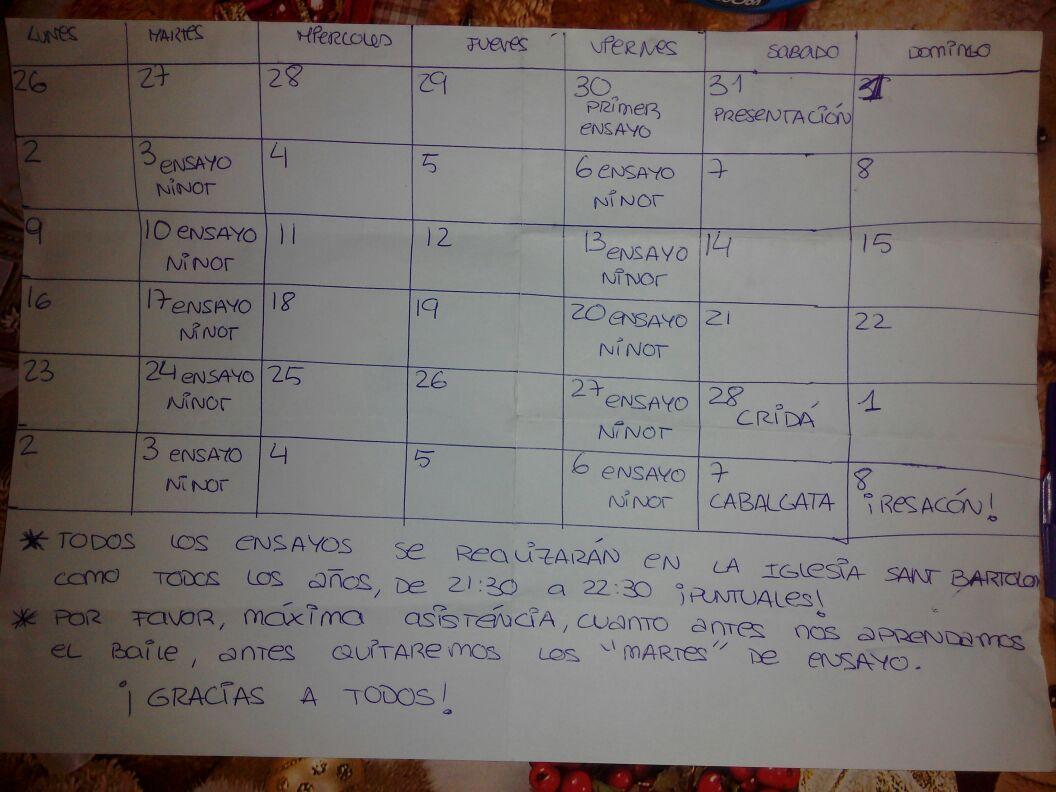 LUNES MARTES MIERCOLES JUEVES VIERNES SABADO DOMINGO
26 27 28 29 30 PRIMER ENSAYO 31 PRESENTACIÓN 1
2 3 ENSAYO NINOT 4 5 6 ENSAYO NINOT 7 8
9 10 ENSAYO NINOT 11 12 13 ENSAYO NINOT 14 15
16 17 ENSAYO NINOT 18 19 20 ENSAYO NINOT 21 22
23 24 ENSAYO NINOT 25 26 27 ENSAYO NINOT 28 CRIDÁ 1
2 3 ENSAYO NINOT 4 5 6 ENSAYO NINOT 7 CABALGATA 8 ¡RESACÓN!
* TODOS LOS ENSAYOS SE REALIZARÁN EN LA IGLESIA SANT BARTOLOM
COMO TODOS LOS AÑOS, DE 21:30 A 22:30 ¡PUNTUALES!
* POR FAVOR, MÁXIMA ASISTÉNCIA, CUANTO ANTES NOS APRENDAMOS
EL BAILE, ANTES QUITAREMOS LOS "MARTES" DE ENSAYO.
¡GRACIAS A TODOS!